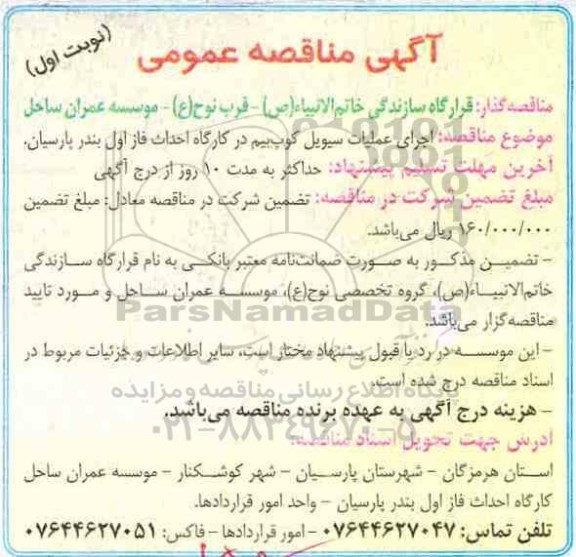 آگهی مناقصه عمومی
(نوبت اول)
مناقصه‌گذار: قرارگاه سازندگی خاتم‌الانبیاء(ص) - قرب نوح(ع) - موسسه عمران ساحل
موضوع مناقصه: اجرای عملیات سیویل کوپ‌بیم در کارگاه احداث فاز اول بندر پارسیان.
آخرین مهلت تسلیم پیشنهاد: حداکثر به مدت ۱۰ روز از درج آگهی
مبلغ تضمین شرکت در مناقصه: تضمین شرکت در مناقصه معادل: مبلغ تضمین
۱۶۰/۰۰۰/۰۰۰ ریال می‌باشد.
- تضمیـن مذکـور به صـورت ضمانت‌نامه معتبر بانکـی به نام قرارگاه سـازندگی
خاتم‌الانبیـاء(ص)، گروه تخصصی نوح(ع)، موسسـه عمران سـاحل و مـورد تایید
مناقصه‌گزار می‌باشد.
ParsNamadData
- این موسسـه در رد یا قبول پیشنهاد مختار است، سایر اطلاعات و جزئیات مربوط در
اسناد مناقصه درج شده است.
پایگاه اطلاع رسانی مناقصه و مزایده
- هزینه درج آگهی به عهده برنده مناقصه می‌باشد.
۰۲۱-۸۸۳۴۹۶۷۰-۵
آدرس جهت تحویل اسناد مناقصه:
اسـتان هرمزگان - شهرستان پارسـیان - شهر کوشـکنار - موسسه عمران ساحل
کارگاه احداث فاز اول بندر پارسیان - واحد امور قراردادها.
تلفن تماس: ۰۷۶۴۴۶۲۷۰۴۷ - امور قراردادها - فاکس: ۰۷۶۴۴۶۲۷۰۵۱